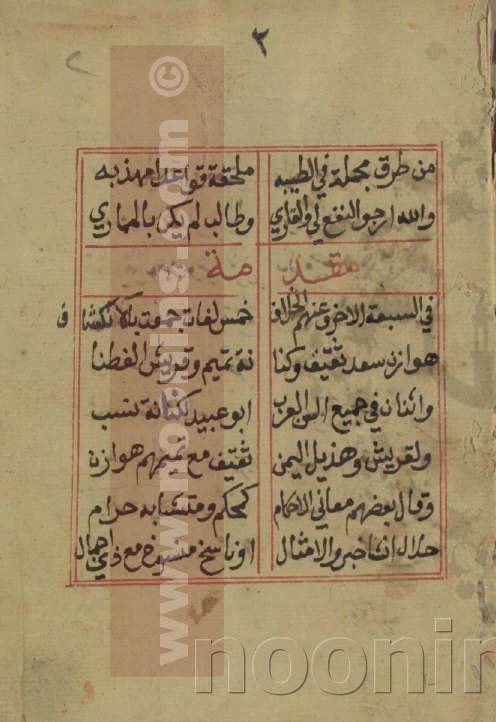 ٢
من طرق مجملة في الطيبه ملحقة قواعدا مهذبه
والله ارجو النفع لي والقاري وطالب لم يكن بالمماري
مقدمة
في السبعة الاحرف عنهم الخلاف خمس لغات جمعت بالانكشاف
هوازن سعد ثقيف وكنا نة تميم وقريش الفطنا
واثنان في جميع السن العرب ابو عبيد لكنانة نسب
ولقريش وهذيل اليمن ثقيف مع تميمهم هوازن
وقال بعضهم معاني الاحكام كمحكم ومتشابه حرام
حلال انشا خبر والامثال او ناسخ منسوخ مع ذي اجمال
www.noorins.com ©
noorin